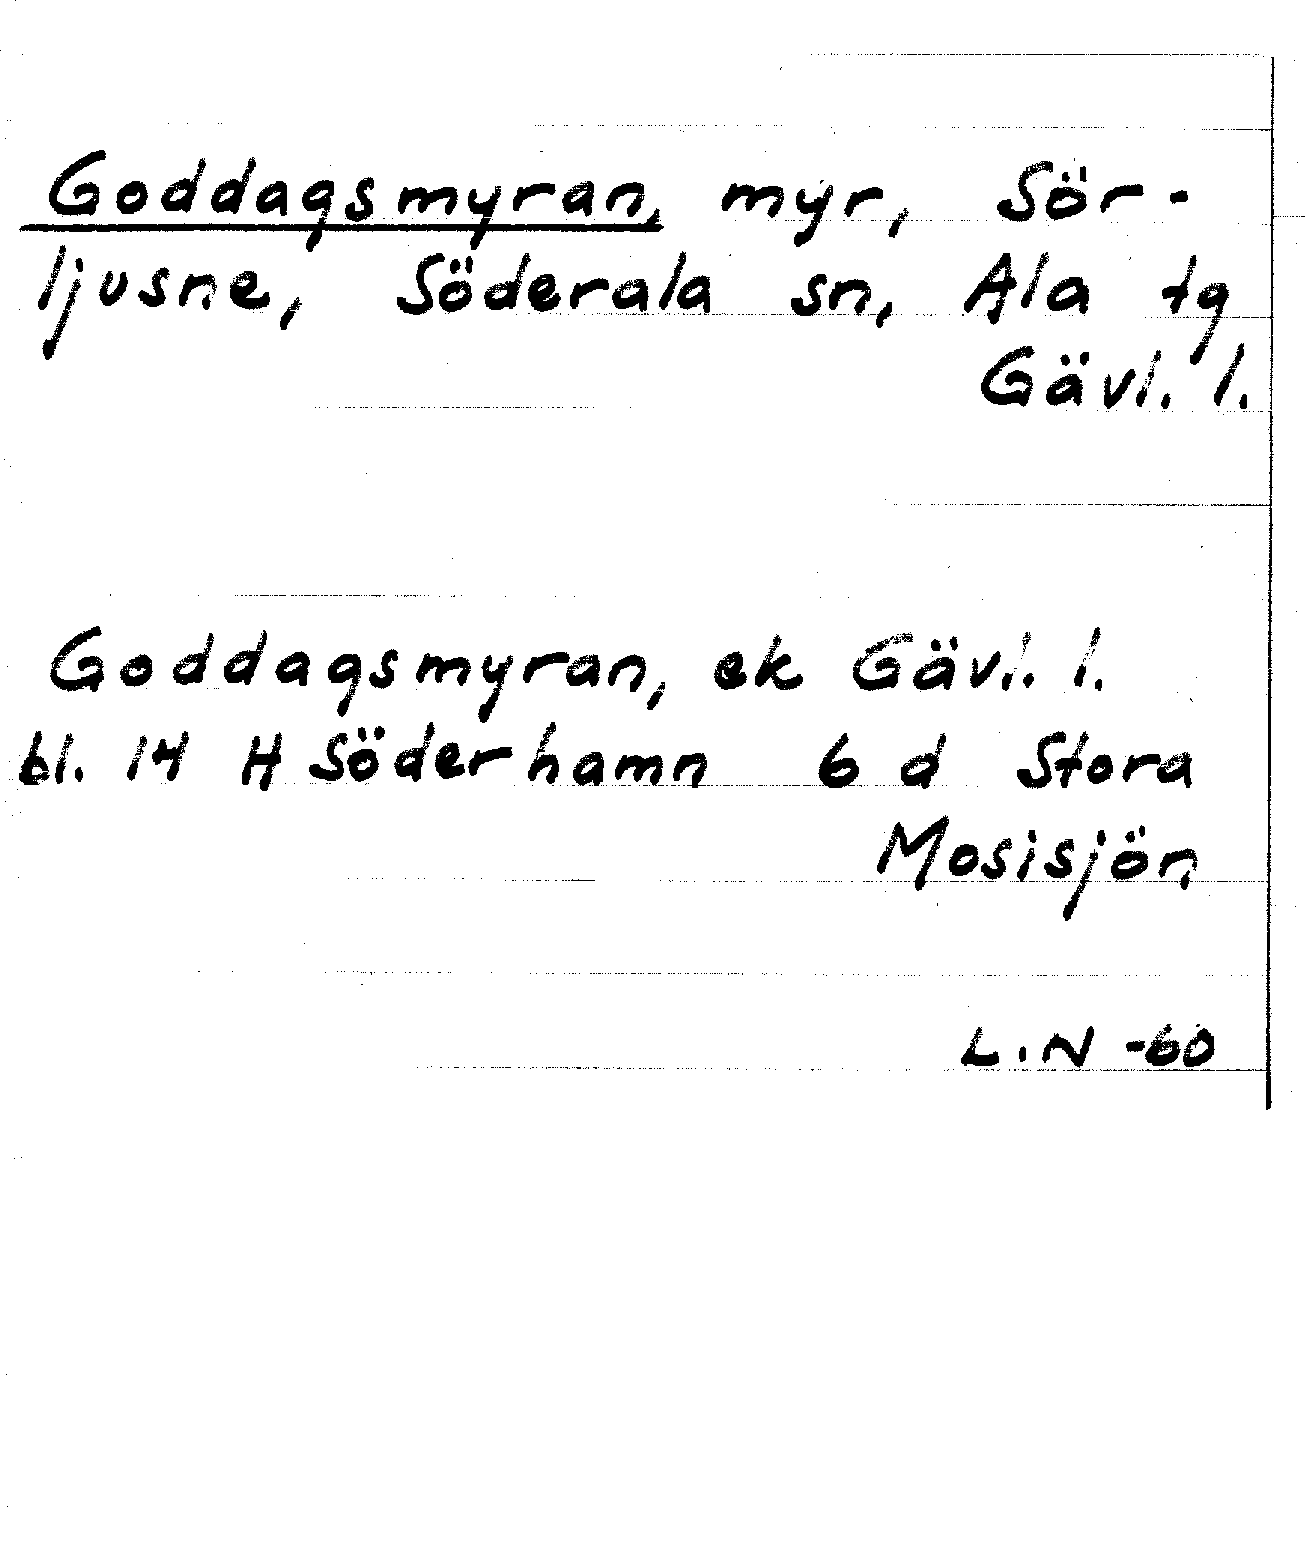 Goddagsmyran, myr, Sör-
ljusne, Söderala sn, Ala tg
Gävl. l.
Goddagsmyran, ek Gävl. l.
bl. 14 H Söderhamn 6 d Stora
Mosisjön
L.N -60